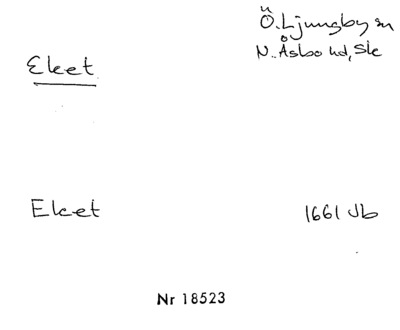 Ö. Ljungby sn
Eket
N. Åsbo hd, Sk
Eket 1661 Jb
Nr 18523